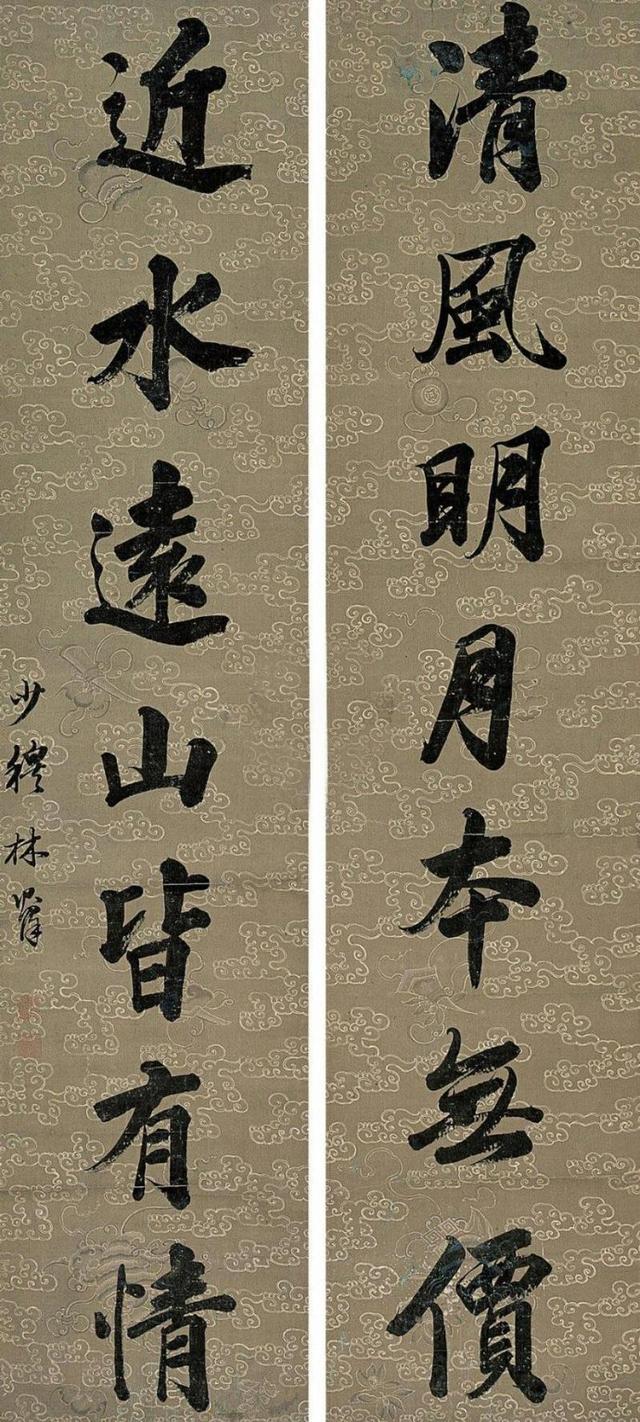 清風明月本無價
近水遠山皆有情
少穆林